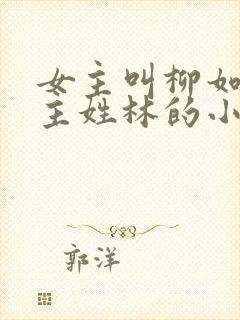 女主叫柳如
主姓林的小
郭洋